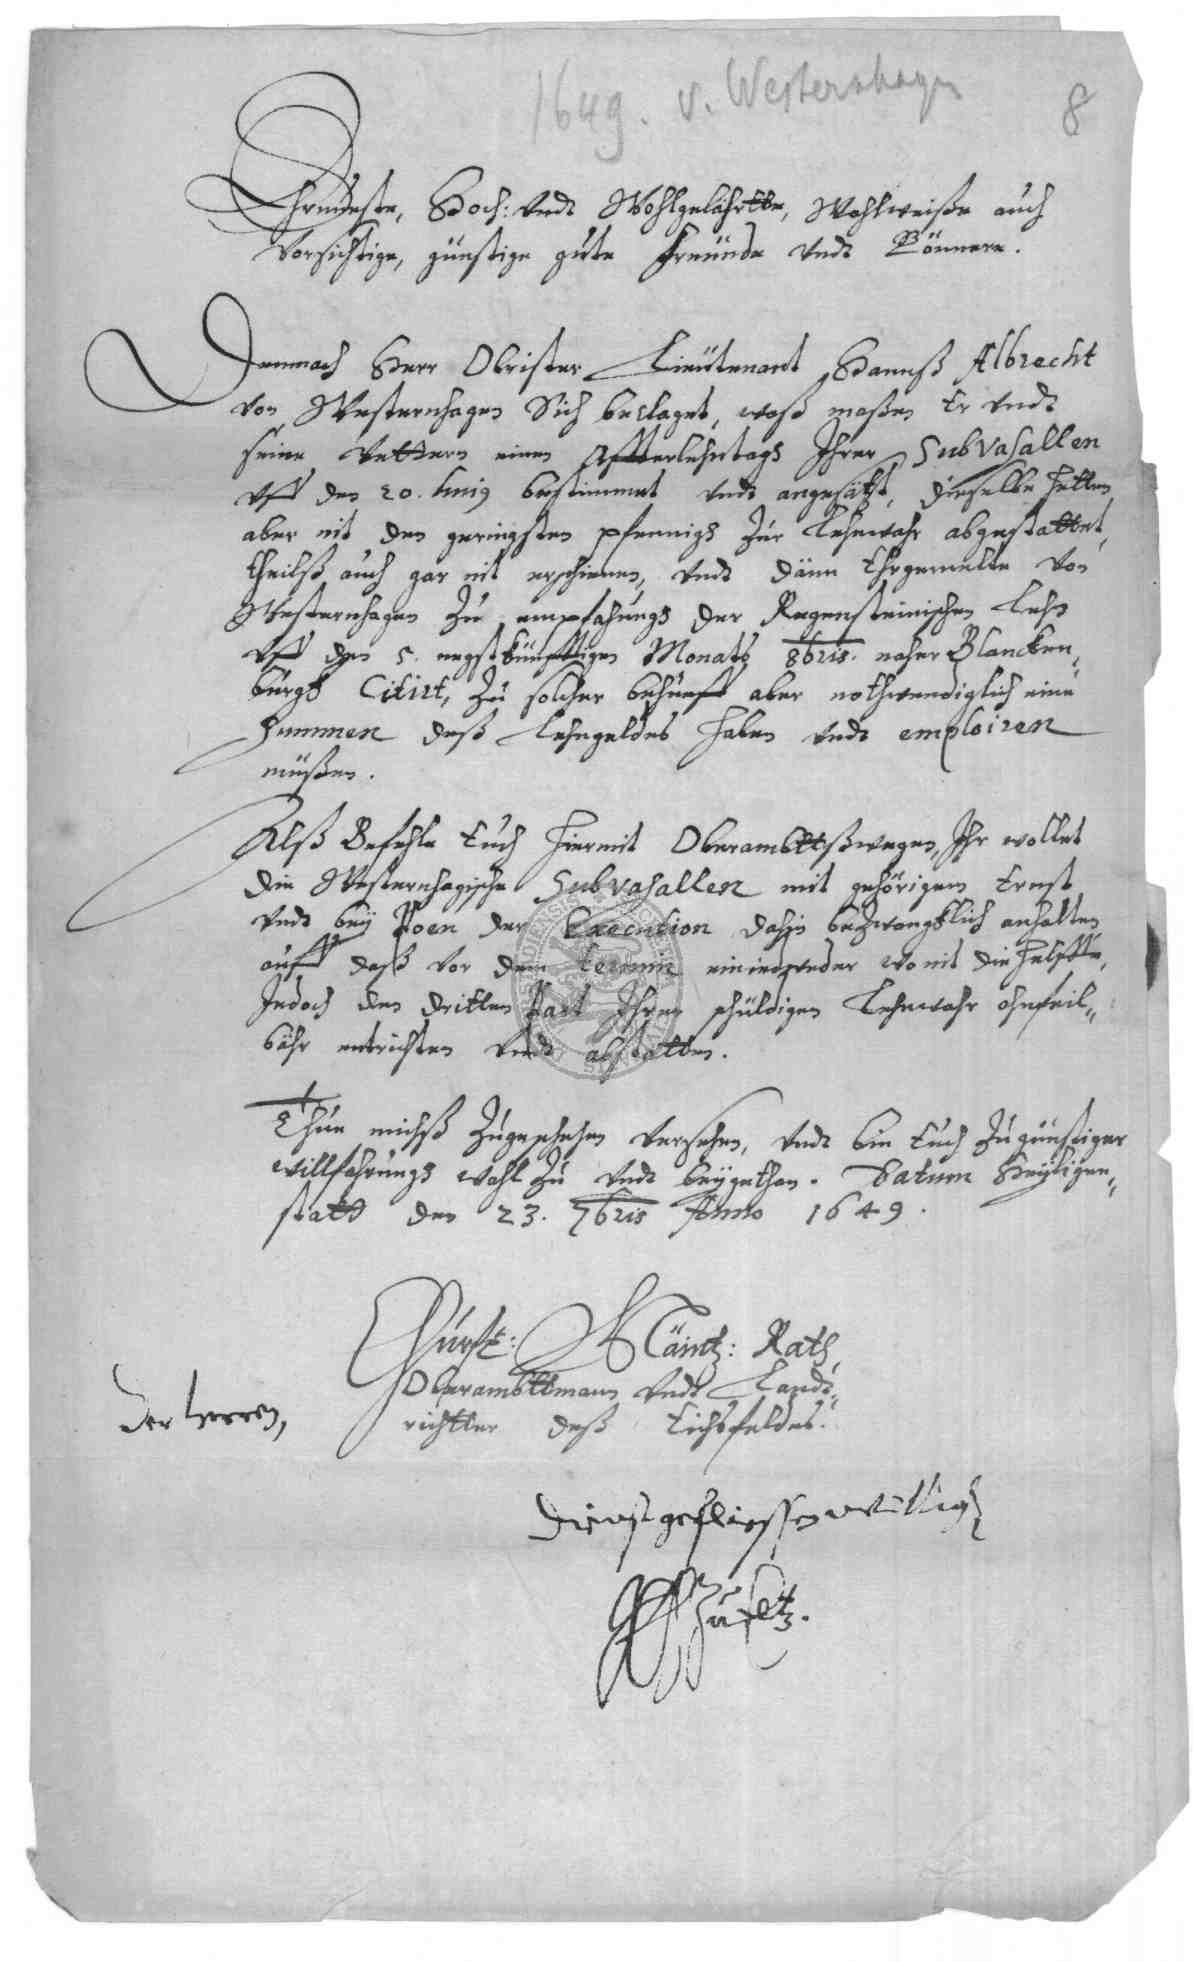 1649. v. Westernhagen
8
Ehrnveste, Hoch: vndt Wohlgelährtte, Wohlweiße auch
Vorsichtige, günstige gute Freünde vndt Gönnere.
Demnach Herr Obrister Lieütenant Hannß Albrecht
von Westernhagen Sich beclaget, waß maßen Er vndt
seine Vettern einen Affterlehntag Ihrer Subvasallen
vff den 20. Iunij bestimmet vndt angesätzt, dieselbe hetten
aber nit den geringsten pfennig zur Lehnwahr abgestattet,
theilß auch gar nit erschienen, vndt dänn Ehrgemelte von
Westernhagen zu empfahung der Regensteinischen Lehn
vff den 5. negstkünfftigen Monats 8bris. naher Blancken„
burgk Citirt, zu solcher behueff aber nothwendiglich eine
Summen deß Lehngeldes haben vndt emploiren
müßen.
Alß Befehle Euch hiermit Oberambttßwegen, Ihr wollet
die Westernhagische Subvasallen mit gehörigem Ernst
vndt bey Poen der Execution dahin bezwenglich anhalten
auff daß vor dem termin ein iedweder wo nit die helffte,
Iedoch den dritten Part Ihrer schüldigen Lehnwahr ohnfeil„
bähr entrichten vndt abstatten.
Thue michß zugeschehen versehen, vndt bin Euch zu günstiger
willfahrung wohl zu vndt beygethan. Datum Heyligen„
statt den 23. 7bris Anno 1649.
Churft: Mäintz: Rath,
Oberambttmann vndt Landt„
richtter deß Eichsfeldes.
Der herren,
Dienstgeflissen williger